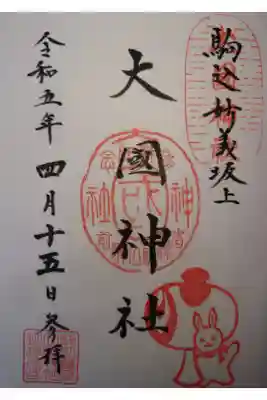 駒込妙義坂上
大國神社
令和五年四月十五日参拝